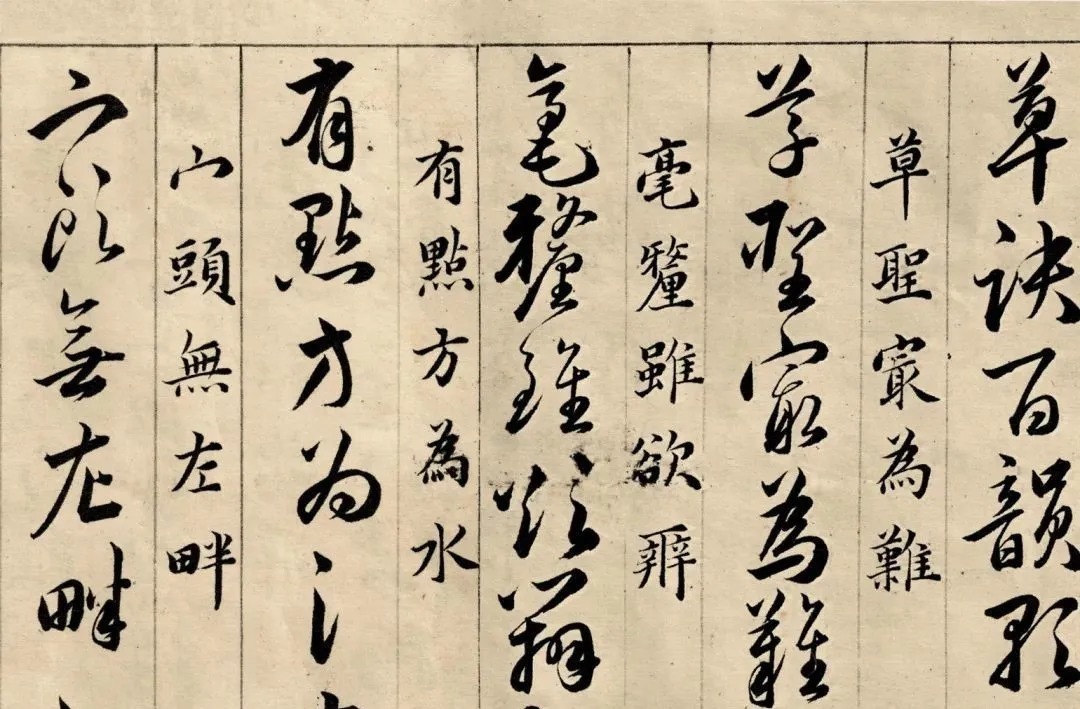 草訣百韻歌
草聖㝡為難
草聖㝡為難
毫釐雖欲辨
毫釐雖欲辨
有點方為水
有點方為氵
宀頭無左畔
宀頭無左畔